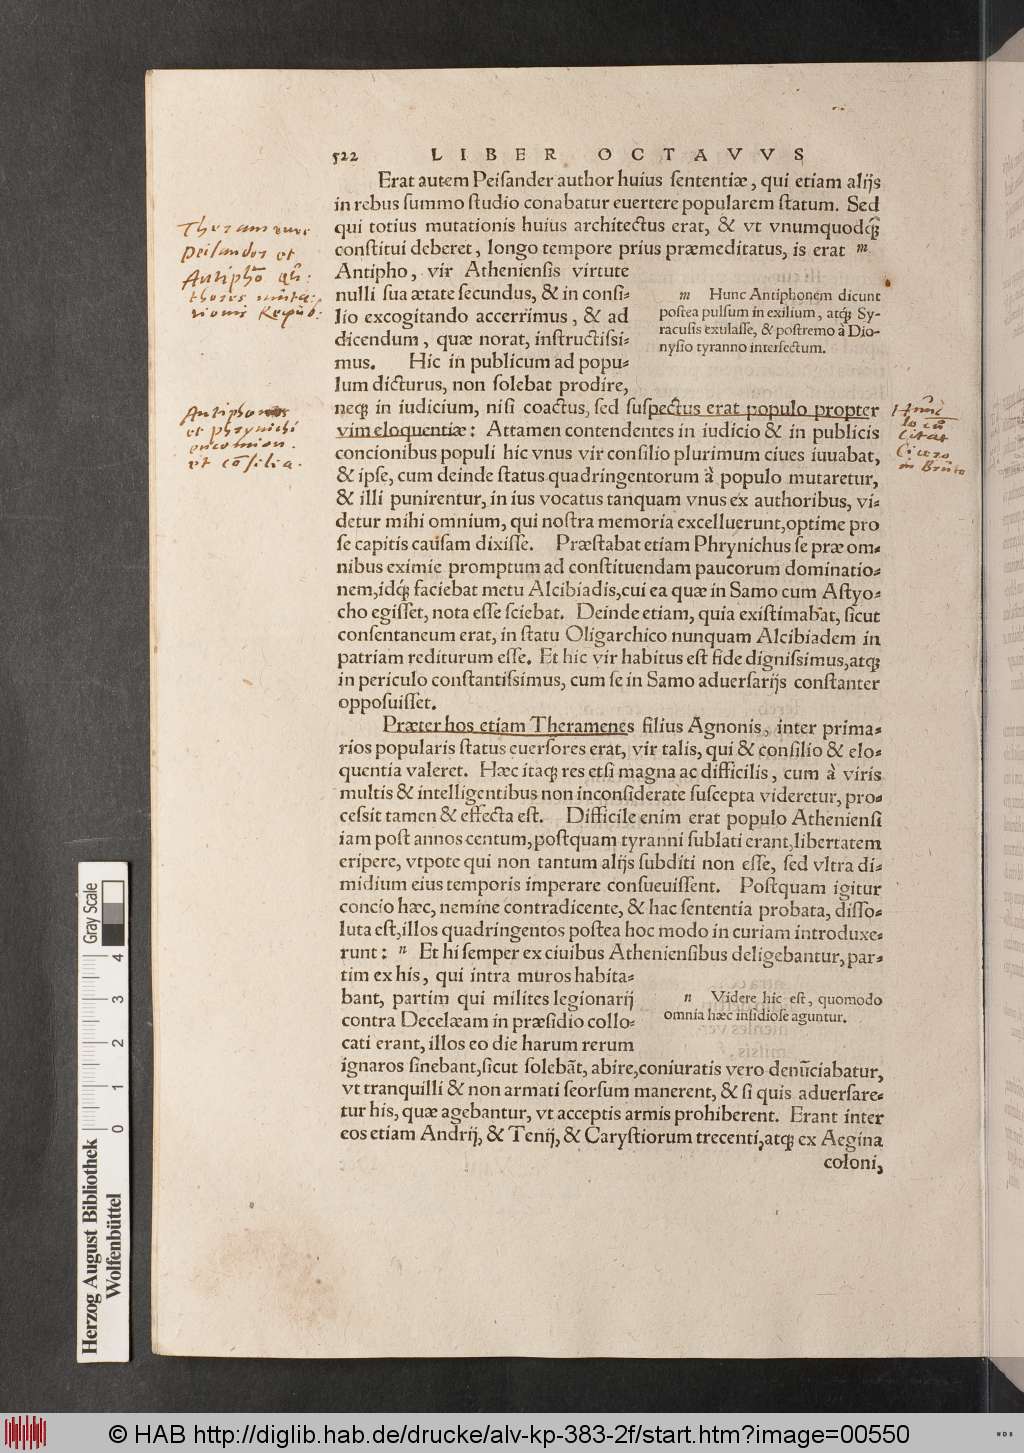 522 LIBER OCTAVVS
Erat autem Peisander author huius sententiæ, qui etiam alijs
in rebus summo studio conabatur euertere popularem statum. Sed
qui totius mutationis huius architectus erat, & vt vnumquodq́;
constitui deberet, longo tempore prius præmeditatus, is erat m
Antipho, vir Atheniensis virtute
nulli sua ætate secundus, & in consi-
lio excogitando accerrimus, & ad
dicendum, quæ norat, instructissi-
mus. Hic in publicum ad popu-
lum dicturus, non solebat prodire,
m Hunc Antiphonem dicunt
postea pulsum in exilium, atq́; Sy-
racusis exulasse, & postremo à Dio-
nysio tyranno interfectum.
neq; in iudicium, nisi coactus, sed suspectus erat populo propter
vim eloquentiæ: Attamen contendentes in iudicio & in publicis
concionibus populi hic vnus vir consilio plurimum ciues iuuabat,
& ipse, cum deinde status quadringentorum à populo mutaretur,
& illi punirentur, in ius vocatus tanquam vnus ex authoribus, vi-
detur mihi omnium, qui nostra memoria excelluerunt, optime pro
se capitis causam dixisse. Præstabat etiam Phrynichus se præ om-
nibus eximie promptum ad constituendam paucorum dominatio-
nem, idq́; faciebat metu Alcibiadis, cui ea quæ in Samo cum Astyo-
cho egisset, nota esse sciebat. Deinde etiam, quia existimabat, sicut
consentaneum erat, in statu Oligarchico nunquam Alcibiadem in
patriam rediturum esse. Et hic vir habitus est fide dignissimus, atq;
in periculo constantissimus, cum se in Samo aduersarijs constanter
opposuisset.
Præter hos etiam Theramenes filius Agnonis, inter prima-
rios popularis status euersores erat, vir talis, qui & consilio & elo-
quentia valeret. Hæc itaq; res etsi magna ac difficilis, cum à viris
multis & intelligentibus non inconsiderate suscepta videretur, pro-
cessit tamen & effecta est. Difficile enim erat populo Atheniensi
iam post annos centum, postquam tyranni sublati erant, libertatem
eripere, vtpote qui non tantum alijs subditi non esse, sed vltra di-
midium eius temporis imperare consueuissent. Postquam igitur
concio hæc, nemine contradicente, & hac sententia probata, disso-
luta est, illos quadringentos postea hoc modo in curiam introduxe-
runt: n Et hi semper ex ciuibus Atheniensibus deligebantur, par-
tim ex his, qui intra muros habita-
bant, partim qui milites legionarij
contra Decelæam in præsidio collo-
cati erant, illos eo die harum rerum
n Videre hic est, quomodo
omnia hæc insidiose aguntur.
ignaros sinebant, sicut solebãt, abire, coniuratis vero denũciabatur,
vt tranquilli & non armati seorsum manerent, & si quis aduersare-
tur his, quæ agebantur, vt acceptis armis prohiberent. Erant inter
eos etiam Andrij, & Tenij, & Carystiorum trecenti, atq; ex Aegina
coloni,
Peisander et
Antiphõ
Antiphontis
et phrynichi
encomion.
et cõsilia.
citat
Cicero
in Bruto
Gray Scale
0 1 2 3 4
Herzog August Bibliothek
Wolfenbüttel
© HAB http://diglib.hab.de/drucke/alv-kp-383-2f/start.htm?image=00550